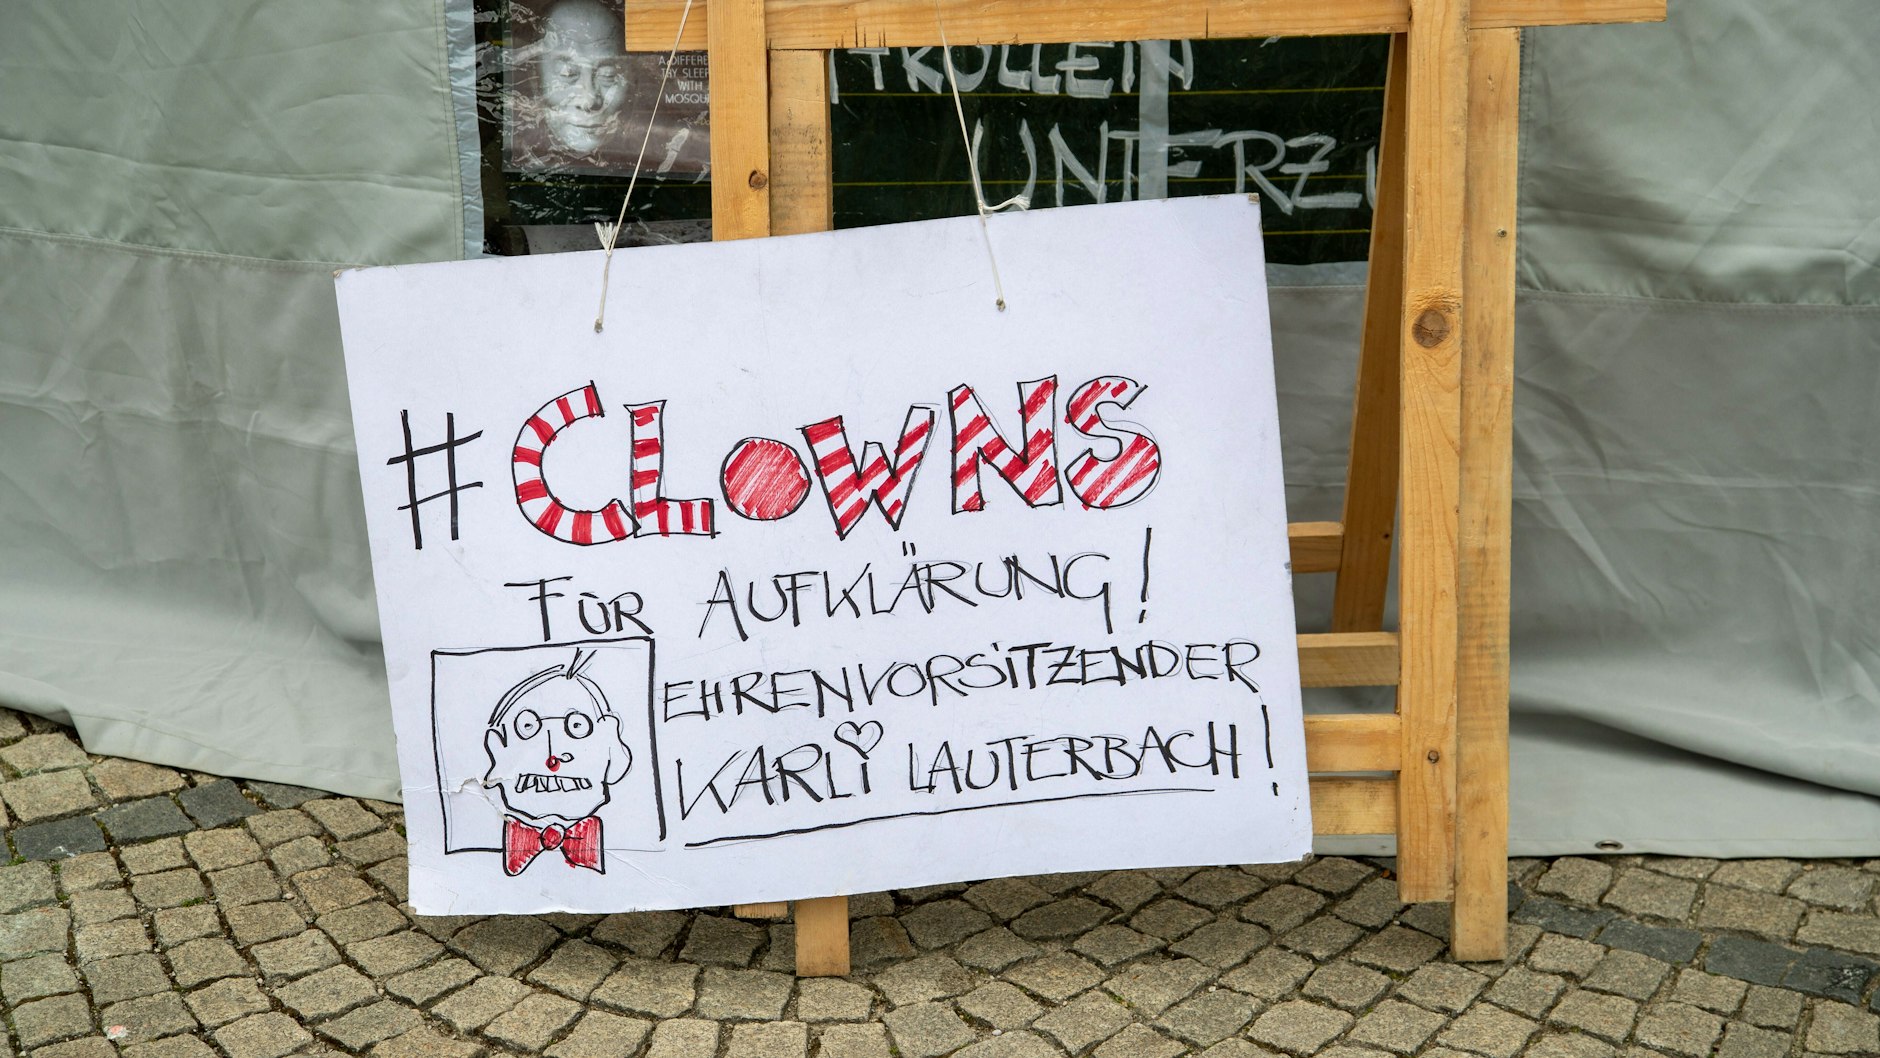 A DIFFERE
TRY SLEEP
WITH A
MOSQU
TROLLEN
UNTERZU
#CLOWNS
FÜR AUFKLÄRUNG!
EHRENVORSITZENDER
KARLI LAUTERBACH!